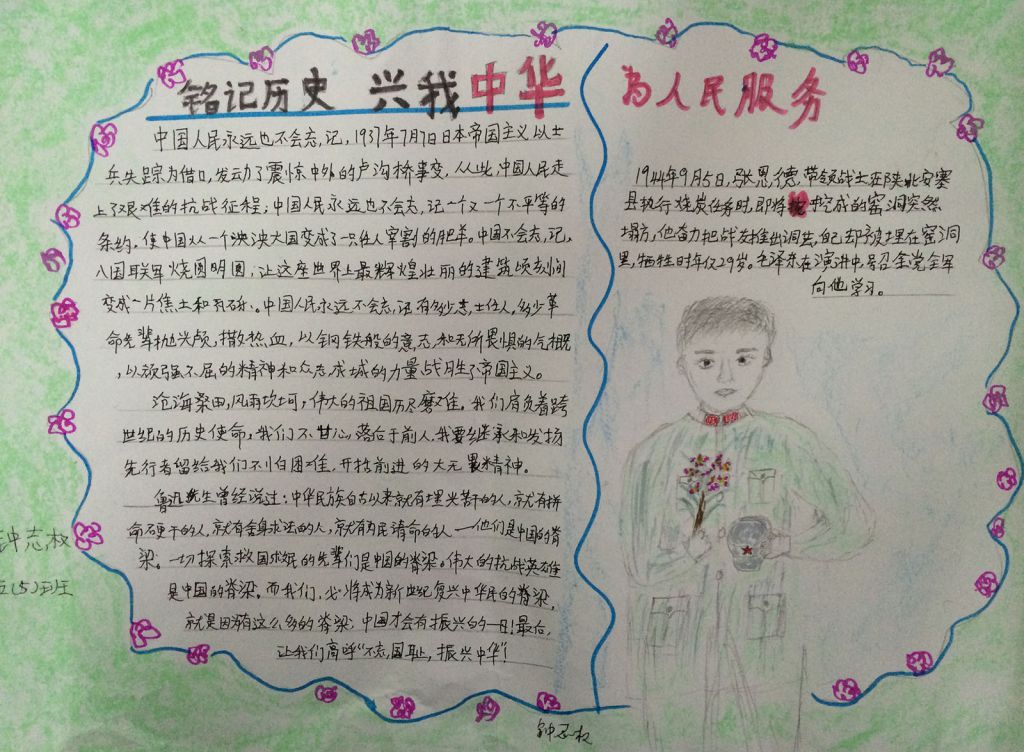 铭记历史 兴我中华
中国人民永远也不会忘记,1937年7月7日日本帝国主义以士
兵失踪为借口,发动了震惊中外的卢沟桥事变,从此,中国人民走
上了艰难的抗战征程;中国人民永远也不会忘记一个又一个不平等的
条约,使中国从一个泱泱大国变成了一只任人宰割的肥羊。中国不会忘记,
八国联军烧圆明圆,让这座世界上最辉煌壮丽的建筑顷刻间
变成一片焦土和瓦砾。中国人民永远不会忘记有多少志士仁人,多少革
命先辈抛头颅,撒热血,以钢铁般的意志和无所畏惧的气概
,以顽强不屈的精神和众志成城的力量战胜了帝国主义。
沧海桑田,风雨坎坷,伟大的祖国历尽磨难。我们肩负着跨
世纪的历史使命,我们不甘心落后于前人,我要继承和发扬
先行者留给我们不怕困难,开拓前进的大无畏精神。
鲁迅先生曾经说过:中华民族自古以来就有埋头苦干的人,就有拼
命硬干的人,就有舍身求法的人,就有为民请命的人—他们是中国的脊
梁。一切探索救国求民的先辈们是中国的脊梁。伟大的抗战英雄
是中国的脊梁。而我们,必将成为新世纪复兴中华民的脊梁,
就是因为有这么多的脊梁,中国才会有振兴的一日!最后,
让我们高呼“不忘国耻,振兴中华”!
为人民服务
1944年9月5日,张思德带领战士在陕北安塞
县执行烧炭任务时,即将挖成的窑洞突然
塌方,他奋力把战友推出洞去,自己却被埋在窑洞
里,牺牲时年仅29岁。毛泽东在演讲中号召全党全军
向他学习。
钟志权
五(5)班
钟志权